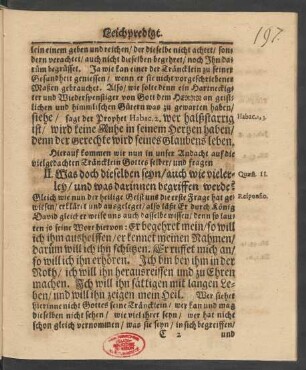 Leichpredigt.
197.
sein einem geben und reichen/ der dieselbe nicht achtet/ son
dern verachtet/ auch nicht dieselben begehret/ noch Ihn da
rüm begrüsset. Ja wie kan einer der Träncklein zu seiner
Gesundheit geniessen/ wenn er sie nicht vorgeschriebener
Maßen gebrauchet. Also/ wie solte denn ein Hartneckig-
ter und Wiederspenstiger von Gott dem HERRN an geist-
lichen und himmlischen Gütern was zu gewarten haben/
siehe/ sagt der Prophet Habac. 2, wer halßstarrig
ist/ wird keine Ruhe in seinem Hertzen haben/
denn der Gerechte wird seines Glaubens leben.
Hierauf kommen wir nun in unser Andacht auf die
vielgedachten Träncklein Gottes selber/ und fragen
II. Was doch dieselben seyn/ auch wie vieler-
ley/ und was darinnen begriffen werde?
Gleich wie nun der heilige Geist uns die erste Frage hat ge-
wissen/ erklärt und ausgeleget/ also läßt Er durch König
David gleich er weise uns auch dasselbe wissen/ denn so lau
ten so seine Wort hiervon: Er begehret mein/ so will
ich ihm aushelffen/ er kennet meinen Nahmen/
darüm will ich ihn schützen. Er ruffet mich an/
so will ich ihn erhören. Ich bin bey ihm in der
Noth/ ich will ihn herausreissen und zu Ehren
machen. Ich will ihn sättigen mit langen Le-
ben/ und will ihm zeigen mein Heil. Wer siehet
hierinne nicht Gottes seine Träncklein/ wer kan und mag
dieselben nicht sehen/ wie vielihrer seyn/ wer hat nicht
schon gleich vernommen/ was sie seyn/ in sich begreiffen/
C 2 und
Habac. 2, 4.
Quæst. II.
Responsio.